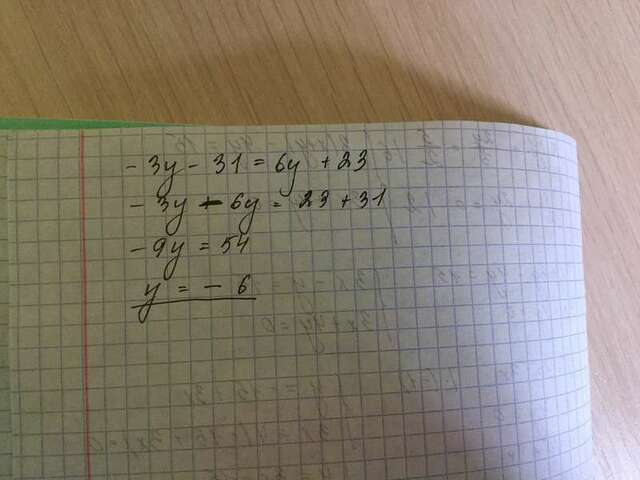 - 3y - 31 = 6y + 23
- 3y - 6y = 23 + 31
- 9y = 54
y = - 6